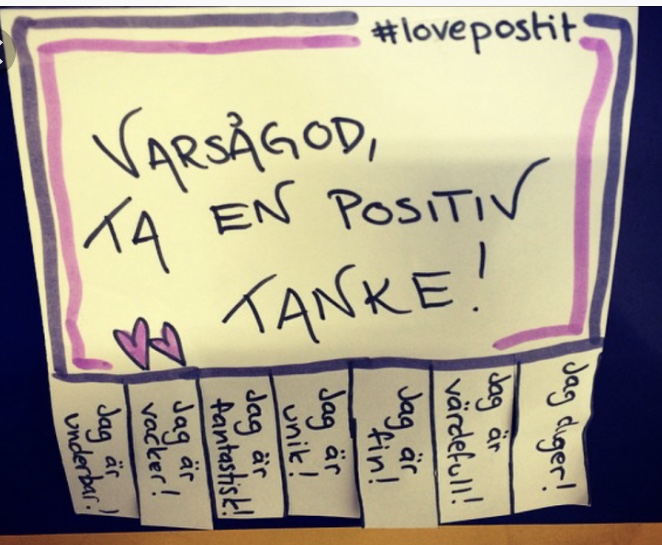 #lovepostit
VARSÅGOD,
TA EN POSITIV
TANKE!
Jag är
underbar!
Jag är
vacker!
Jag är
fantastisk!
Jag är
unik!
Jag är
fin!
Jag är
värdefull!
Jag duger!